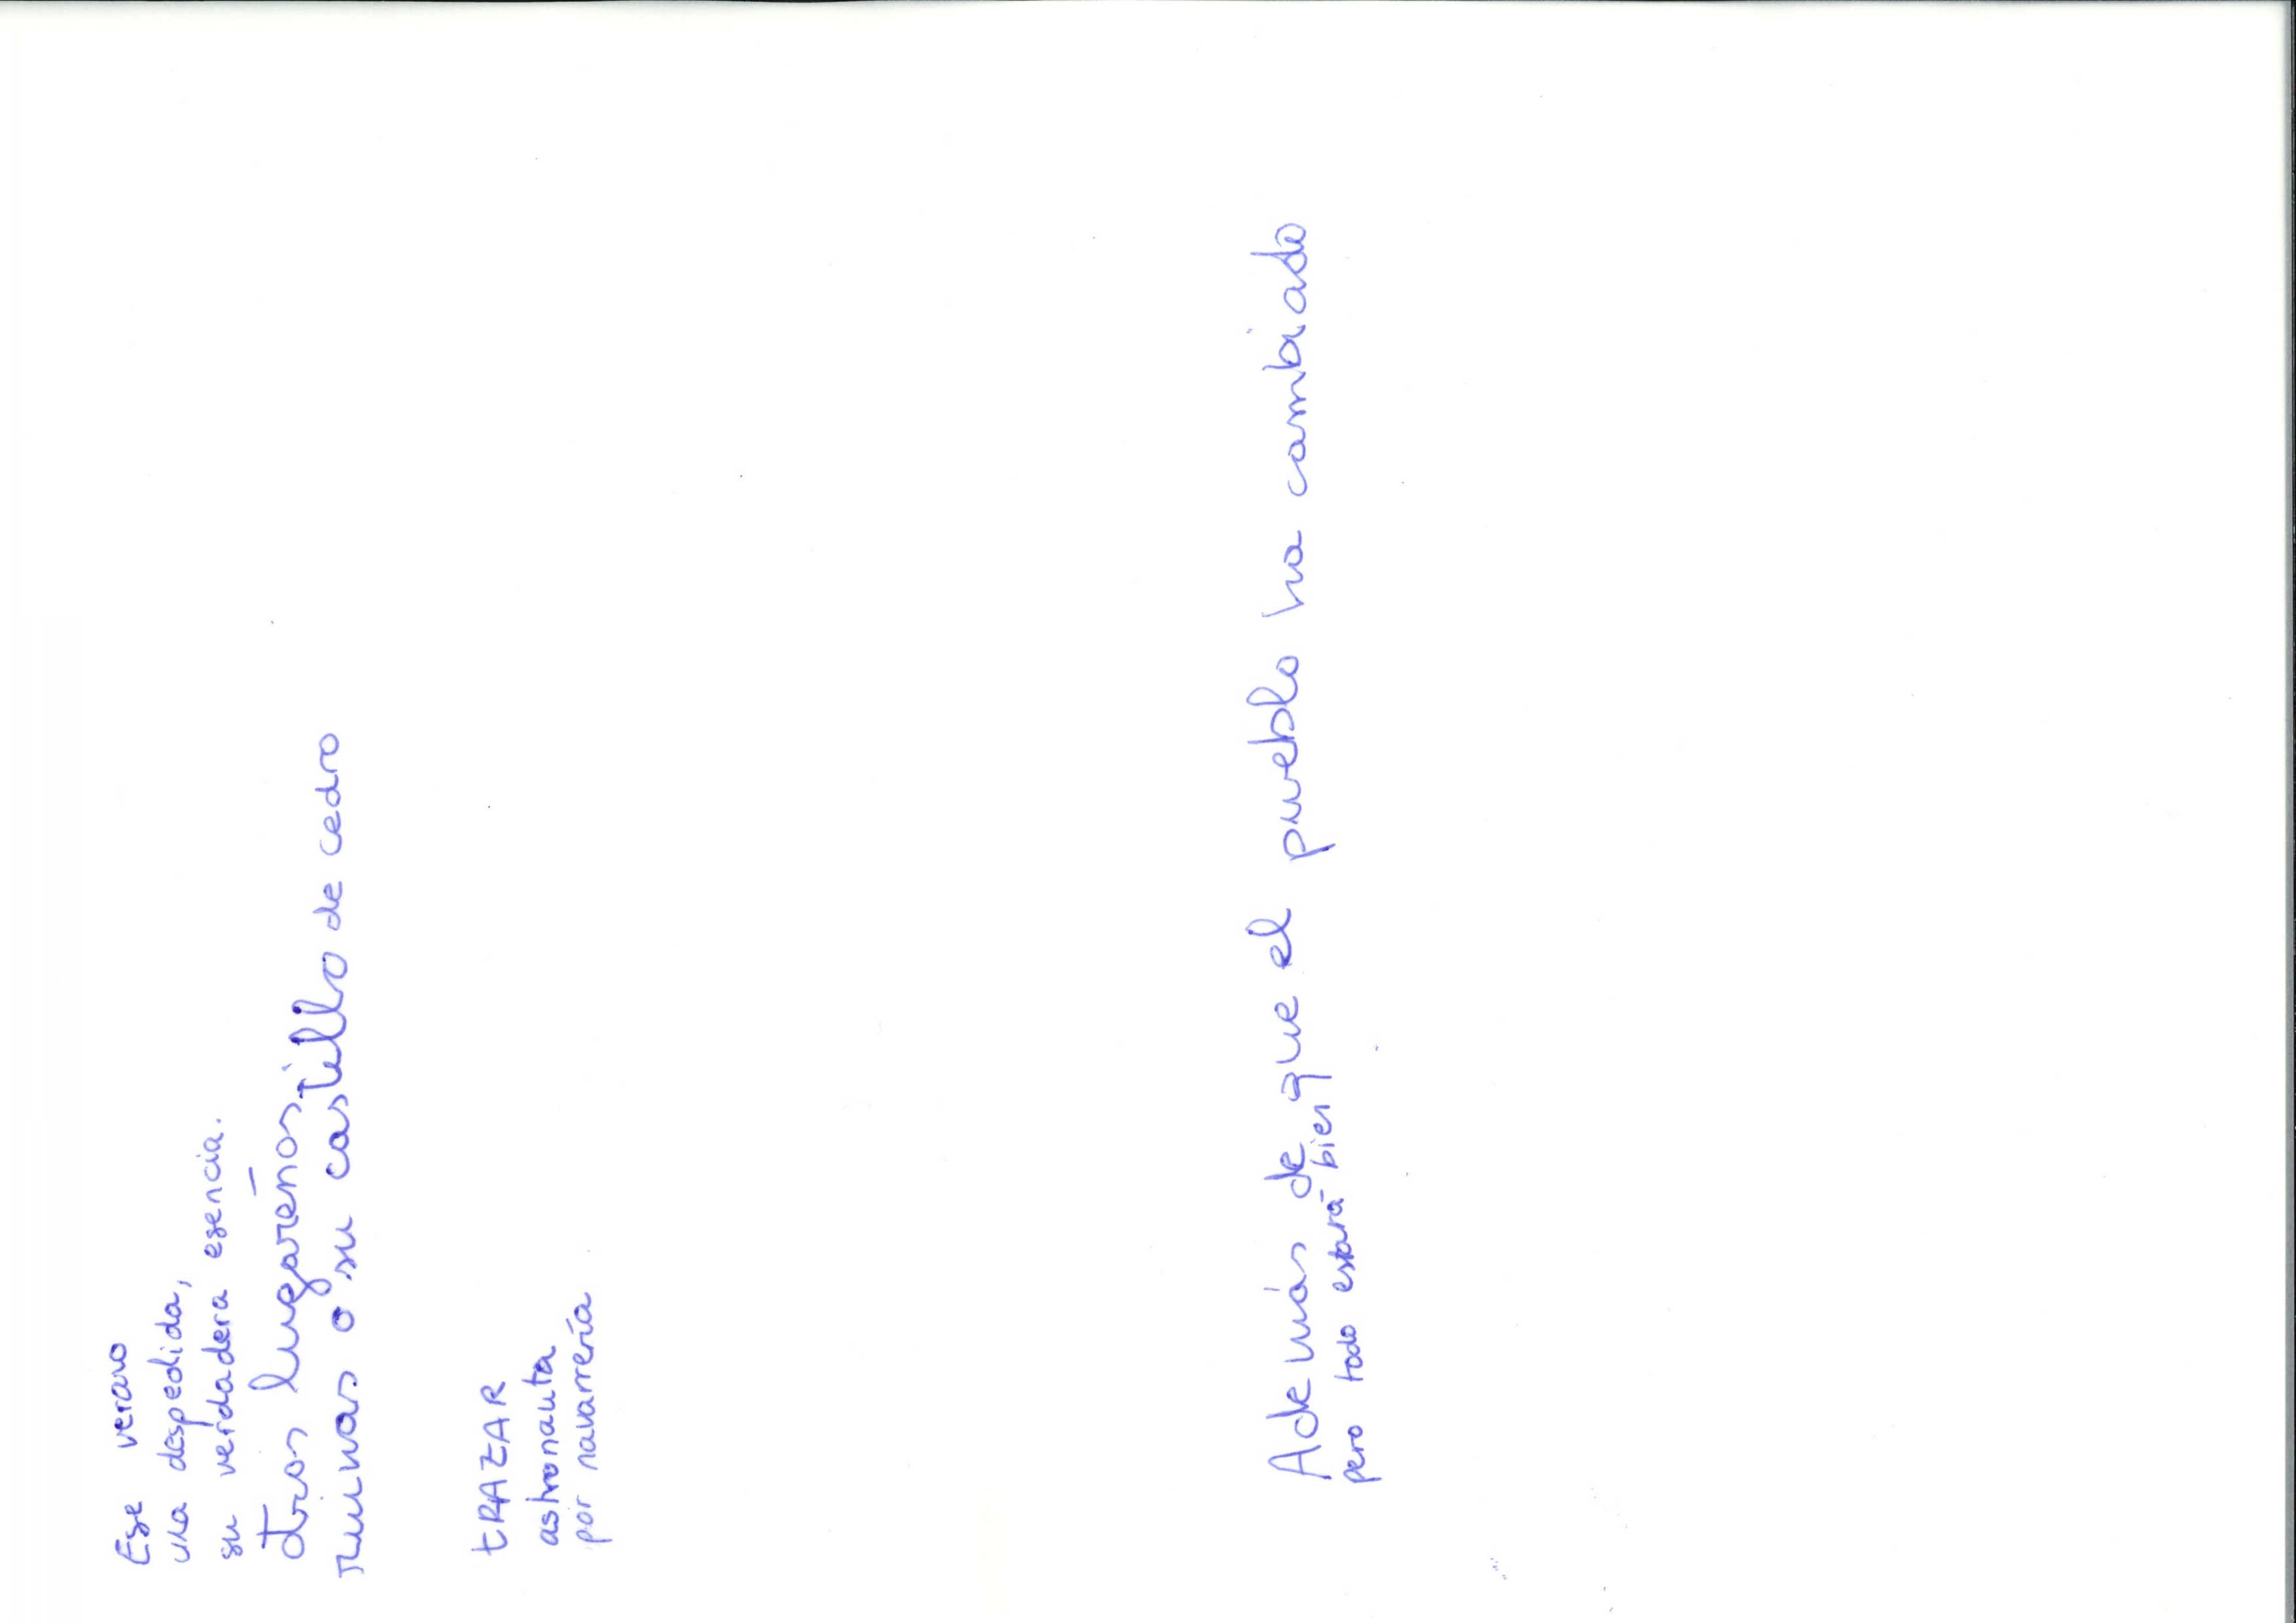 Ese verano
una despedida,
su verdadera esencia.
otros lugareños.
ruinas o su castillo de cedro
tRAZAR
astronauta
por navarrería
Además de que el pueblo ha cambiado
pero todo estará bien